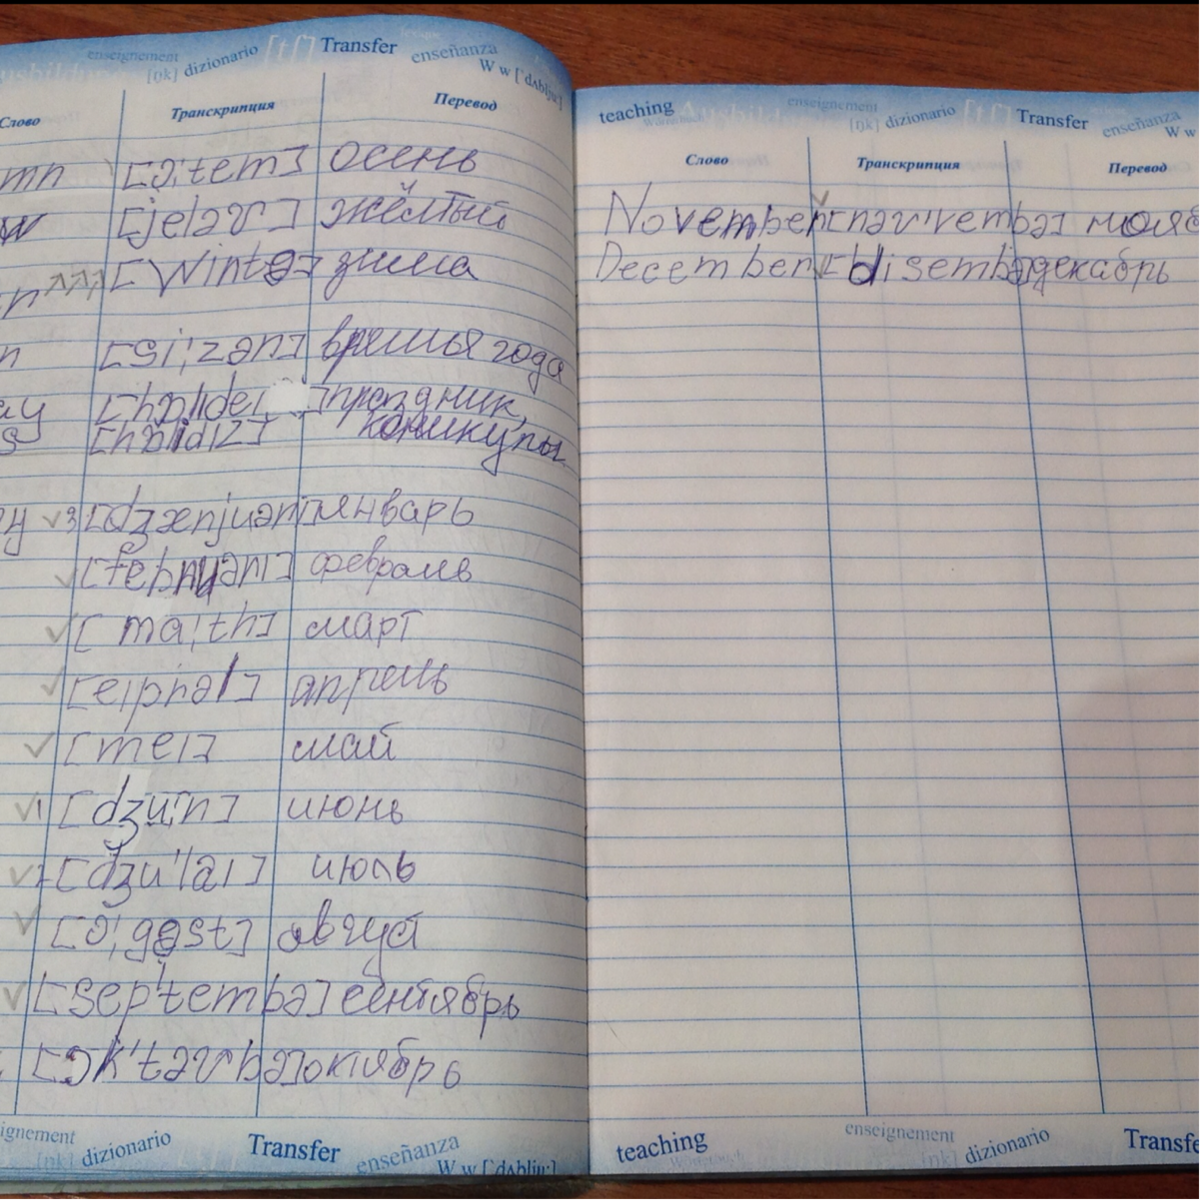 enseignement [ŋk] dizionario [tʃ] Transfer enseñanza W w ['dʌblju:]
Слово Транскрипция Перевод
[ɔ:tem] осень
[jeləʊ] жёлтый
[Wintə] зима
[si:zən] время года
[hɔlideɪ ] праздник,
[hɔlidiz] каникулы
[dʒænjuəri] январь
[februəri] февраль
[ma:th] март
[eiprəl] апрель
[mei] май
[dʒu:n] июнь
[dʒu'lai] июль
[ɔ:gəst] август
[sep'tembə] сентябрь
[ɔk'təʊbə] октябрь
dizionario Transfer enseñanza W w ['dʌblju:]
teaching enseignement [ŋk] dizionario [tʃ] Transfer enseñanza W w
Слово Транскрипция Перевод
November [nəʊ'vembə] нояб
December [disembə] декабрь
teaching enseignement [ŋk] dizionario Transfe